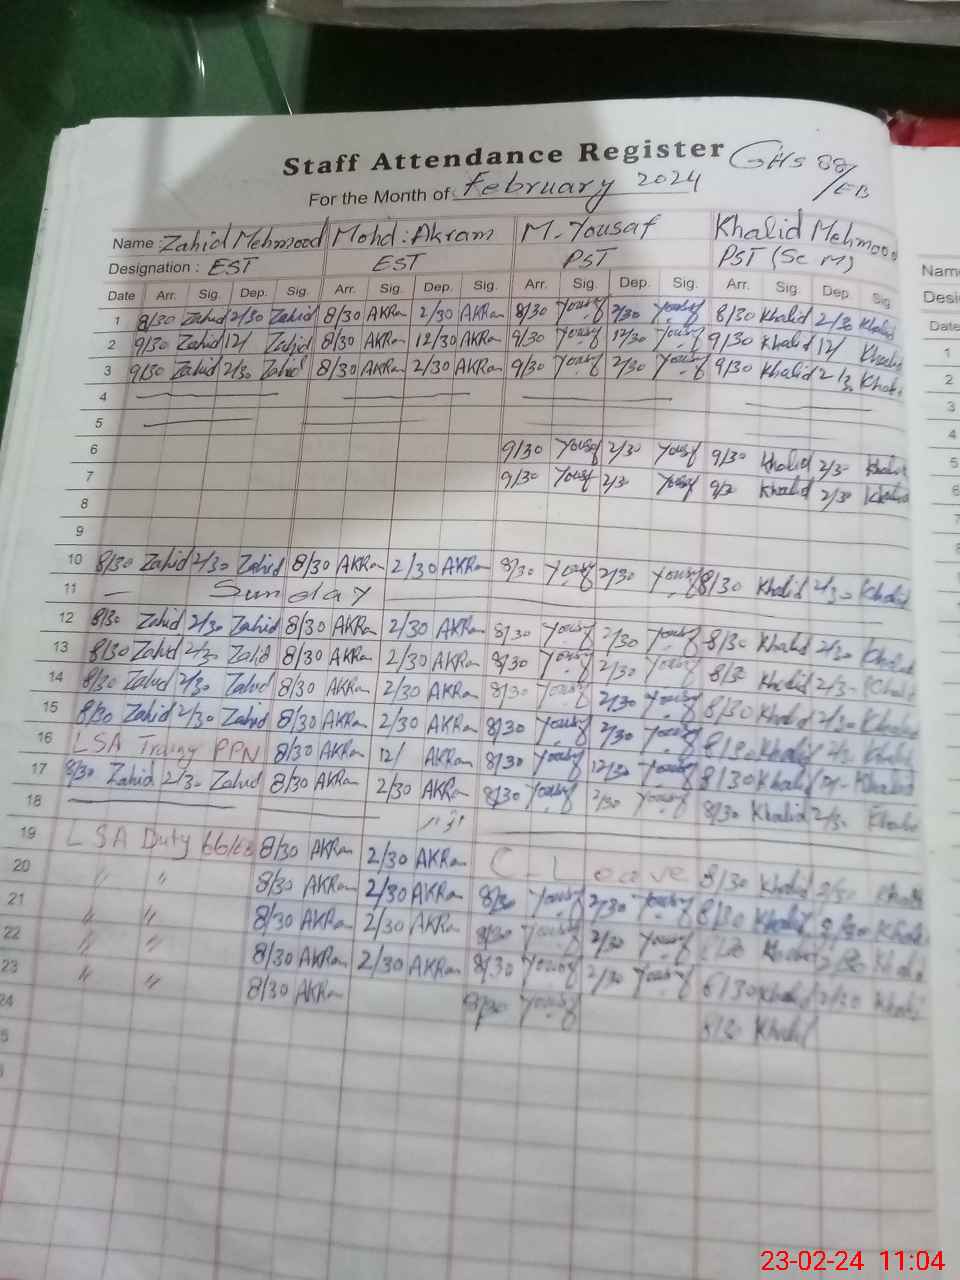 Staff Attendance Register GHS 88/EB
For the Month of February 2024
Name : Zahid Mehmood Mohd : Akram M. Yousaf Khalid Mehmood
Designation : EST EST PST PST (Sc M)
Date Arr. Sig. Dep. Sig. Arr. Sig. Dep. Sig. Arr. Sig. Dep. Sig. Arr. Sig. Dep. Sig
1 8/30 Zahid 2/30 Zahid 8/30 AKRam 2/30 AKRam 8/30 Yousf 2/30 Yousf 8/30 Khalid 2/30 Khalid
2 9/30 Zahid 12/ Zahid 8/30 AKRam 12/30 AKRam 9/30 Yousf 12/30 Yousf 9/30 Khalid 12/ Khalid
3 9/30 Zahid 2/30 Zahid 8/30 AKRam 2/30 AKRam 9/30 Yousf 2/30 Yousf 9/30 Khalid 2/30 Khalid
4
5
6 9/30 Yousf 2/30 Yousf 9/30 Khalid 2/30 Khalid
7 9/30 Yousf 2/30 Yousf Khalid 2/30 Khalid
8
9
10 8/30 Zahid 2/30 Zahid 8/30 AKRam 2/30 AKRam 8/30 Yousf 2/30 Yousf 8/30 Khalid 2/30 Khalid
11 Sunday
12 8/30 Zahid 2/30 Zahid 8/30 AKRam 2/30 AKRam 8/30 Yousf 2/30 Yousf 8/30 Khalid 2/30 Khalid
13 8/30 Zahid 2/30 Zahid 8/30 AKRam 2/30 AKRam 8/30 Yousf 2/30 Yousf 8/30 Khalid 2/30 Khalid
14 8/30 Zahid 2/30 Zahid 8/30 AKRam 2/30 AKRam 8/30 Yousf 2/30 Yousf 8/30 Khalid 2/30 Khalid
15 8/30 Zahid 2/30 Zahid 8/30 AKRam 2/30 AKRam 8/30 Yousf 2/30 Yousf 8/30 Khalid Khalid
16 LSA PPN 8/30 AKRam 12/ AKRam 8/30 Yousf 12/30 Yousf 8/30 Khalid Khalid
17 8/30 Zahid 2/30 Zahid 8/30 AKRam 2/30 AKRam 8/30 Yousf 2/30 Yousf 8/30 Khalid 2/30 Khalid
18
19 LSA Duty 8/30 AKRam 2/30 AKRam C-Leave 8/30 Khalid Khalid
20 " " 8/30 AKRam 2/30 AKRam 8/30 Yousf 2/30 Yousf 8/30 Khalid Khalid
21 " " 8/30 AKRam 2/30 AKRam 8/30 Yousf 2/30 Yousf
22 " " 8/30 AKRam 2/30 AKRam 8/30 Yousf 2/30 Yousf Khalid 2/30
23 " " 8/30 AKRam 8/30 Yousf 8/30 Khalid
24
Name
Desi
Date
1
2
3
4
5
6
7
23-02-24 11:04